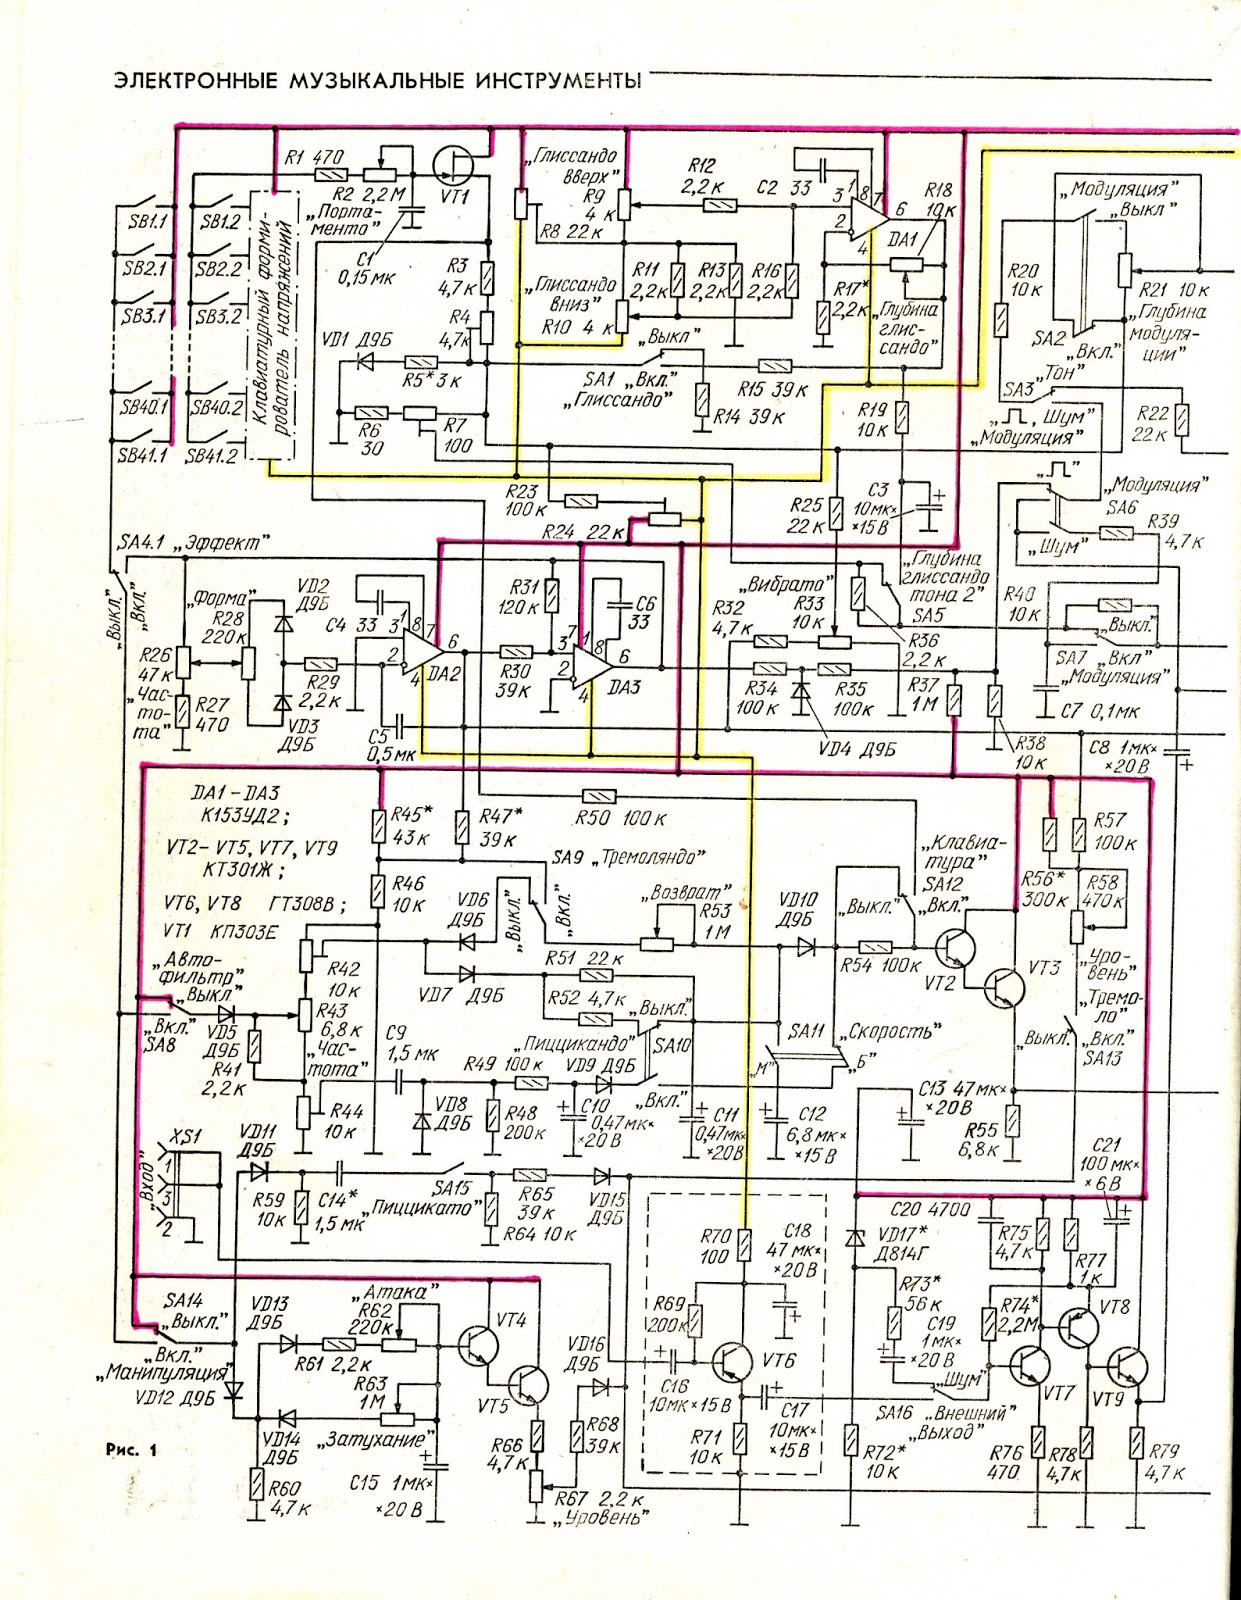 ЭЛЕКТРОННЫЕ МУЗЫКАЛЬНЫЕ ИНСТРУМЕНТЫ
R1 470
R2 2,2 М
„Порта-
менто"
C1
0,15 мк
VT1
„Глиссандо
вверх"
R9
4 к
R8 22 к
R12
2,2 к
C2 33
3
2
1
8
7
6
4
DA1
R18
10 к
„Модуляция"
„Выкл"
SB1.1
SB1.2
SB2.1
SB2.2
SB3.1
SB3.2
SB40.1
SB40.2
SB41.1
SB41.2
Клавиатурный форми-
рователь напряжений
R3
4,7 к
R4
4,7 к
„Глиссандо
вниз"
R10 4 к
R11
2,2 к
R13
2,2 к
R16
2,2 к
R17*
2,2 к
„Глубина
глис-
сандо"
R20
10 к
R21 10 к
„Глубина
модуля-
ции"
SA2
„Вкл."
VD1 Д9Б
R5* 3 к
R6
30
R7
100
„Выкл"
SA1 „Вкл."
„Глиссандо"
R15 39 к
R14 39 к
R19
10 к
„Тон"
SA3
„ „Шум"
„Модуляция"
R22
22 к
R23
100 к
R24 22 к
R25
22 к
C3
10 мк×
×15 В
„ "
„Модуляция"
SA6
„Шум"
R39
4,7 к
SA4.1 „Эффект"
„Выкл."
„Вкл."
„Форма"
R28
220 к
VD2
Д9Б
C4
33
3
2
1
8
7
6
4
DA2
R31
120 к
C6
33
R30
39 к
7
1
8
3
2
6
4
DA3
„Вибрато"
R32
4,7 к
R33
10 к
„Глубина
глиссандо
тона 2"
SA5
R36
2,2 к
R40
10 к
„Выкл."
SA7 „Вкл"
„Модуляция"
R26
47 к
„Час-
то-
та"
R27
470
VD3
Д9Б
R29
2,2 к
C5
0,5 мк
R34
100 к
R35
100 к
VD4 Д9Б
R37
1 М
R38
10 к
C7 0,1 мк
C8 1 мк×
×20 В
DA1 – DA3
К153УД2;
VT2– VT5, VT7, VT9
КТ301Ж;
VT6, VT8 ГТ308В;
VT1 КП303Е
R45*
43 к
R47*
39 к
R46
10 к
R50 100 к
SA9 „Тремоляндо"
„Выкл."
„Вкл."
VD6
Д9Б
„Возврат"
R53
1 М
VD10
Д9Б
„Клавиа-
тура"
SA12
„Выкл."
„Вкл."
R56*
300 к
R57
100 к
R58
470 к
„Уро-
вень"
„Тремо-
ло"
„Выкл."
„Вкл."
SA13
„Авто-
фильтр"
„Выкл"
„Вкл."
SA8
VD5
Д9Б
R41
2,2 к
R42
10 к
R43
6,8 к
„Час-
тота"
R44
10 к
VD7 Д9Б
R51 22 к
R52 4,7 к
R54 100 к
VT2
VT3
C9
1,5 мк
R49
100 к
„Пиццикандо"
VD9 Д9Б
„Выкл."
SA10
„Вкл."
SA11
„Скорость"
„М"
„Б"
VD8
Д9Б
R48
200 к
C10
0,47 мк×
×20 В
C11
0,47 мк×
×20 В
C12
6,8 мк×
×15 В
C13 47 мк×
×20 В
R55
6,8 к
C21
100 мк×
×6 В
XS1
„Вход"
1
3
2
VD11
Д9Б
R59
10 к
C14*
1,5 мк
SA15
„Пиццикато"
R65
39 к
R64 10 к
VD15
Д9Б
R70
100
C18
47 мк×
×20 В
VD17*
Д814Г
C20 4700
R75
4,7 к
R77
1 к
R73*
56 к
R74*
2,2 М
VT8
SA14
„Выкл."
„Вкл."
„Манипуляция"
VD12 Д9Б
VD13
Д9Б
„Атака"
R62
220 к
R61 2,2 к
R63
1 М
VD14
Д9Б
„Затухание"
C15 1 мк×
×20 В
R60
4,7 к
VT4
VT5
R66
4,7 к
R67 2,2 к
„Уровень"
VD16
Д9Б
R68
39 к
R69
200 к
C16
10 мк×15 В
VT6
R71
10 к
C17
10 мк×
×15 В
C19
1 мк×
×20 В
„Шум"
SA16 „Внешний"
„Выход"
R72*
10 к
VT7
VT9
R76
470
R78
4,7 к
R79
4,7 к
Рис. 1